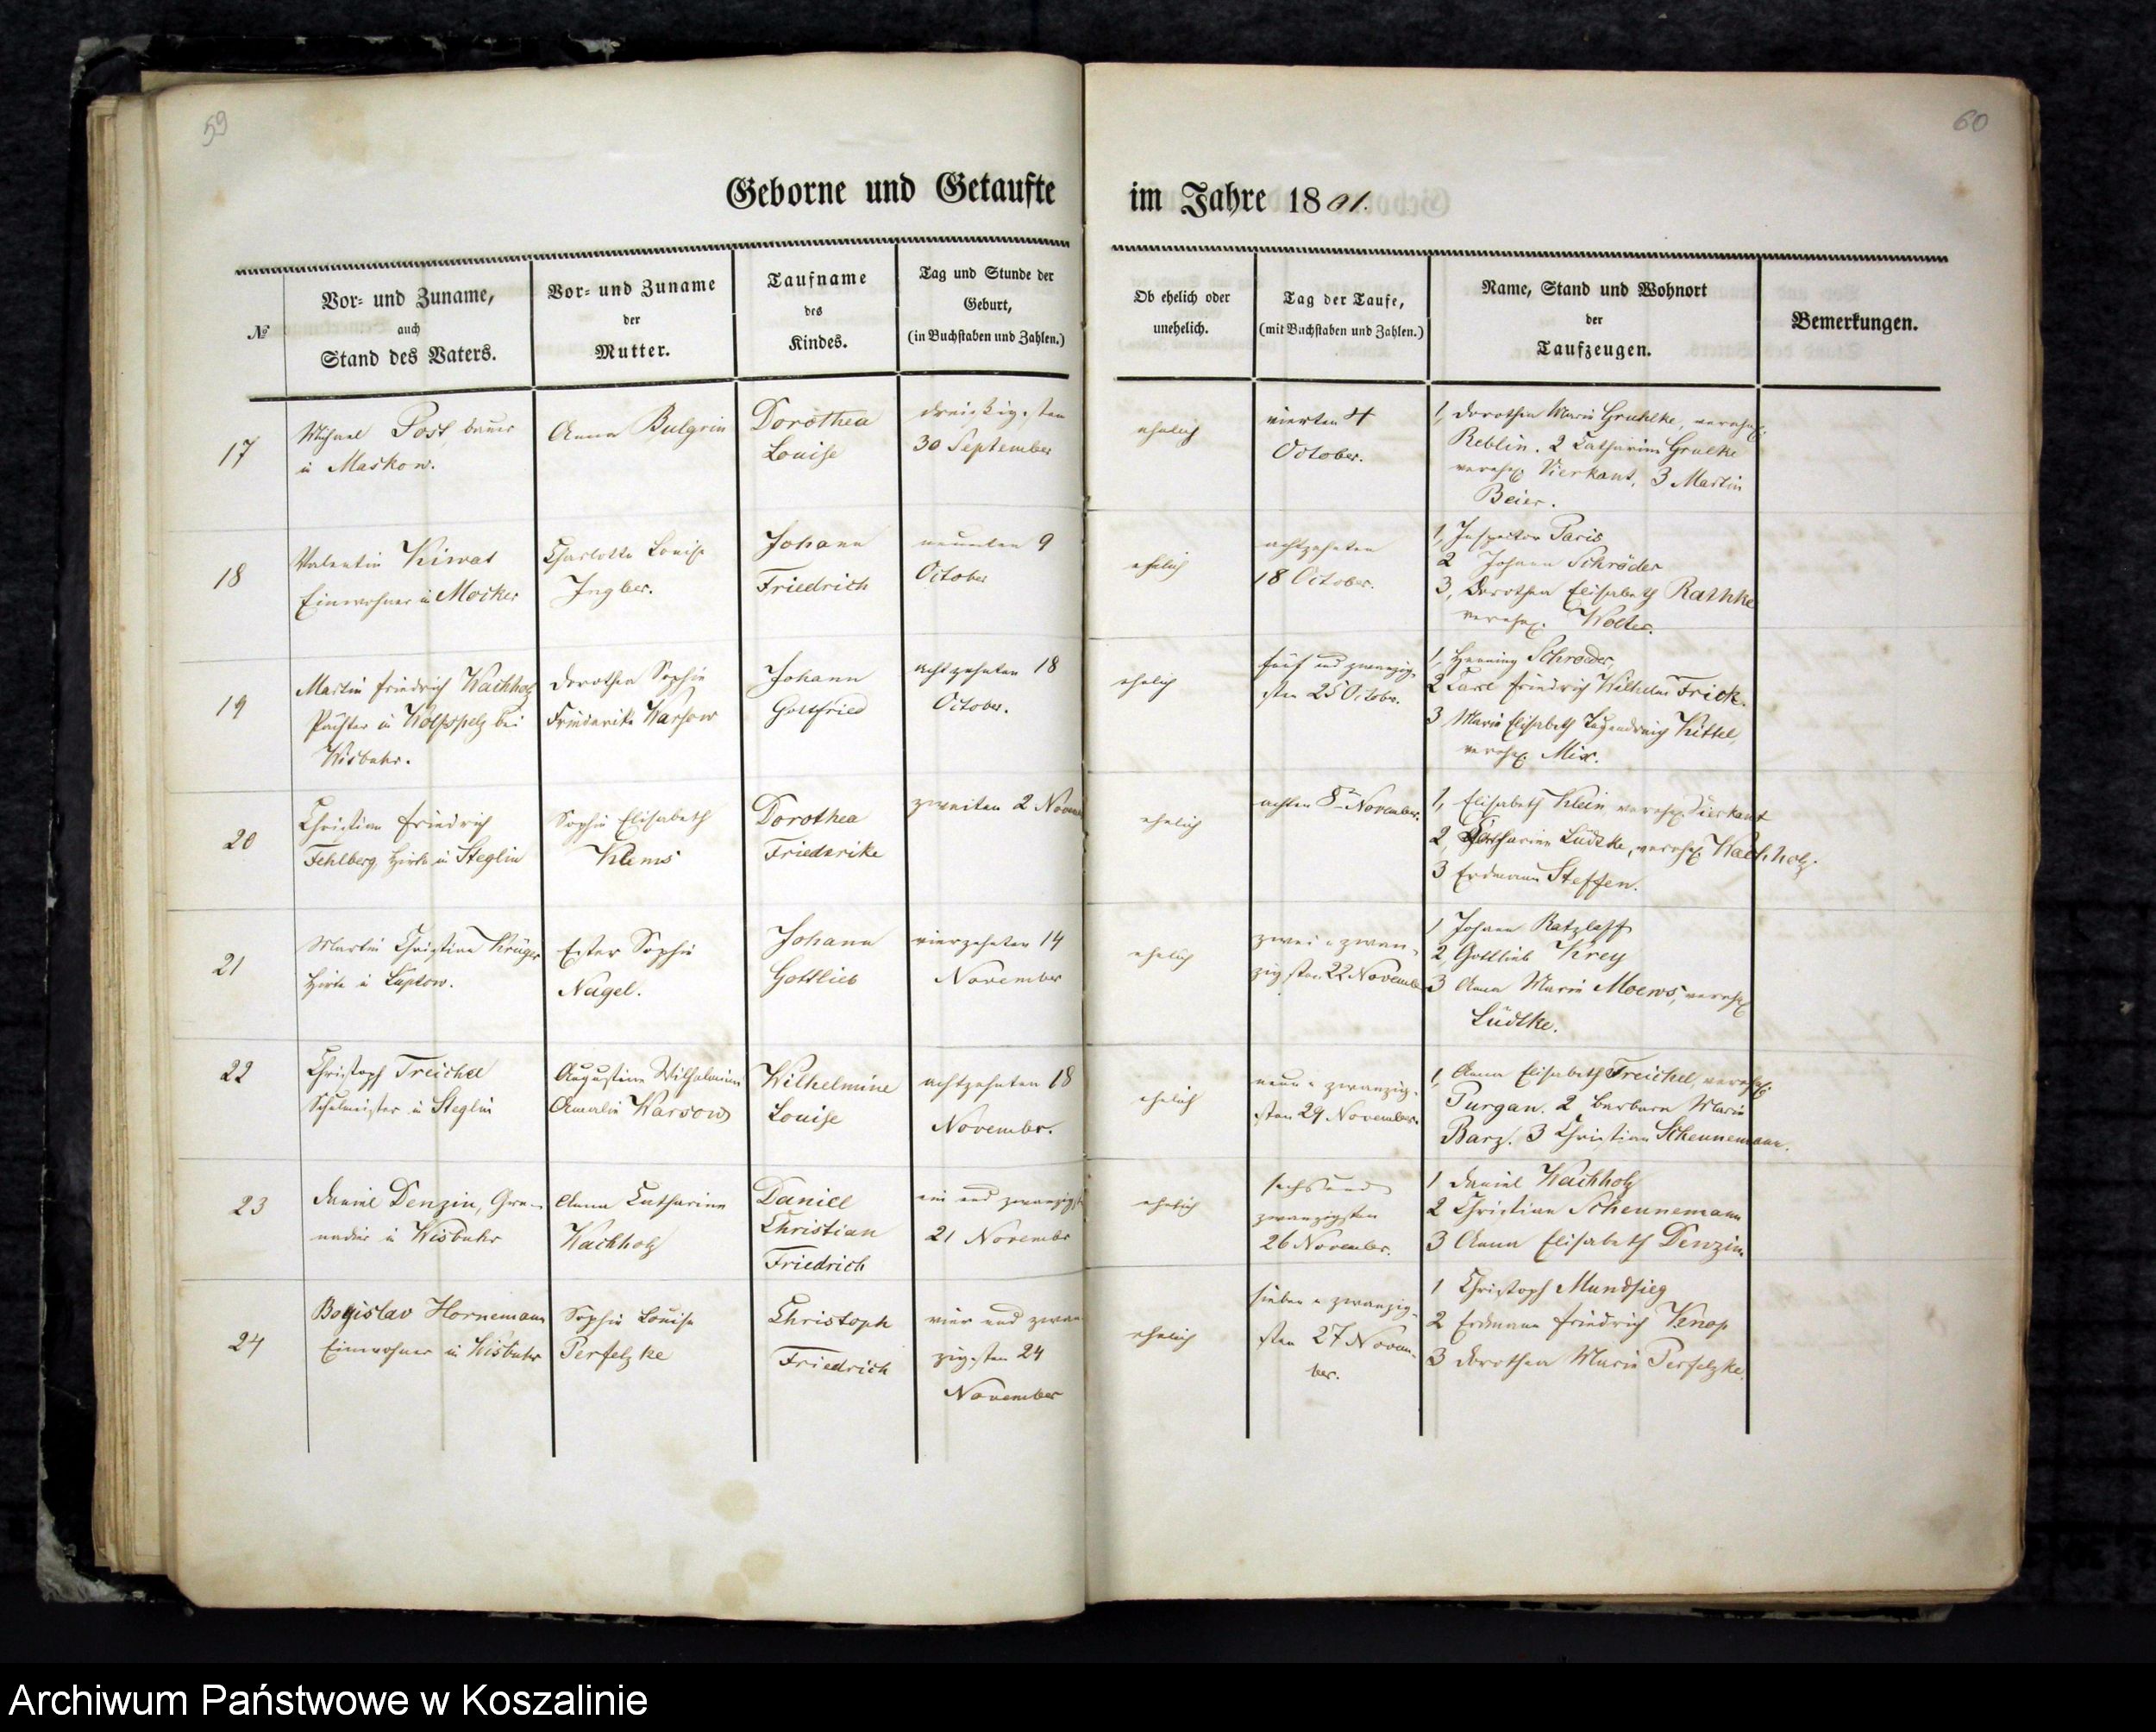 59
60
Geborne und Getaufte
im Jahre 1801.
№
Vor- und Zuname,
auch
Stand des Vaters.
Vor- und Zuname
der
Mutter.
Taufname
des
Kindes.
Tag und Stunde der
Geburt,
(in Buchstaben und Zahlen.)
Ob ehelich oder
unehelich.
Tag der Taufe,
(mit Buchstaben und Zahlen.)
Name, Stand und Wohnort
der
Taufzeugen.
Bemerkungen.
17
Michael Post, bauer
in Maskow.
Anna Bulgrin
Dorothea
Louise
dreißigsten
30 September
ehelich
vierten 4
October.
1, Dorothea Marie Gruhlke, verehel.
Reblin. 2 Catharina Grulke
verehel. Vierkant, 3 Martin
Beier.
18
Valentin Kiwat
Einwohner in Mocker
Charlotte Louise
Ingber.
Johann
Friedrich
neunten 9
October
ehelich
achtzehnten
18 October.
1, Inspector Paris
2 Johann Schröder
3, Dorothea Elisabeth Rathke
verehel. Wolter.
19
Martin Friedrich Wachholz
Pächter in Wolfspelz bei
Wisbuhr.
Dorothea Sophie
Friederike Warsow
Johann
Gottfried
achtzehnten 18
October.
ehelich
fünf und zwanzig-
sten 25 October.
1, Henning Schroeder,
2 Carl Friedrich Wilhelm Frick.
3 Marie Elisabeth Tugendreich Kittel,
verehel. Mix.
20
Christian Friedrich
Fehlberg, Hirte in Steglin
Sophie Elisabeth
Klems
Dorothea
Friederike
zweiten 2 Novem
ehelich
achten 8 November.
1, Elisabeth Klein verehel. Vierkant
2, Catharine Lüdtke, verehel. Wachholz.
3 Erdmann Steffen.
21
Martin Christian Krüger
Hirte in Lüptow.
Ester Sophie
Nagel.
Johann
Gottlieb
vierzehnten 14
November
ehelich
zwei u zwan-
zigsten 22 Novembe
1 Johann Ratzlaff
2, Gottlieb Krey
3 Anna Marie Moews, verehel
Lüdtke.
22
Christoph Treichel
Schulmeister in Steglin
Augustine Wilhelmine
Amalie Warsow
Wilhelmine
Louise
achtzehnten 18
Novembr.
ehelich
neun u zwanzig-
sten 29 November.
1, Anna Elisabeth Treichel, verehel.
Purgan. 2 Barbara Marie
Barz. 3 Christian Scheunemann.
23
Daniel Denzin, Gre-
nadier in Wisbuhr
Anna Catharina
Wachholz
Daniel
Christian
Friedrich
ein und zwanzigst
21 Novembr
ehelich
sechs und
zwanzigsten
26 November.
1 Daniel Wachholz
2 Christian Scheunemann
3 Anna Elisabeth Denzin
24
Bogislav Hornemann
Einwohner in Wisbuhr
Sophie Louise
Perfelzke
Christoph
Friedrich
vier und zwan
zigsten 24
November
ehelich
sieben u zwanzig-
sten 27 Novem-
ber.
1 Christoph Mundsieg
2 Erdmann Friedrich Knop
3 Dorothea Marie Perfelzke.
Archiwum Państwowe w Koszalinie